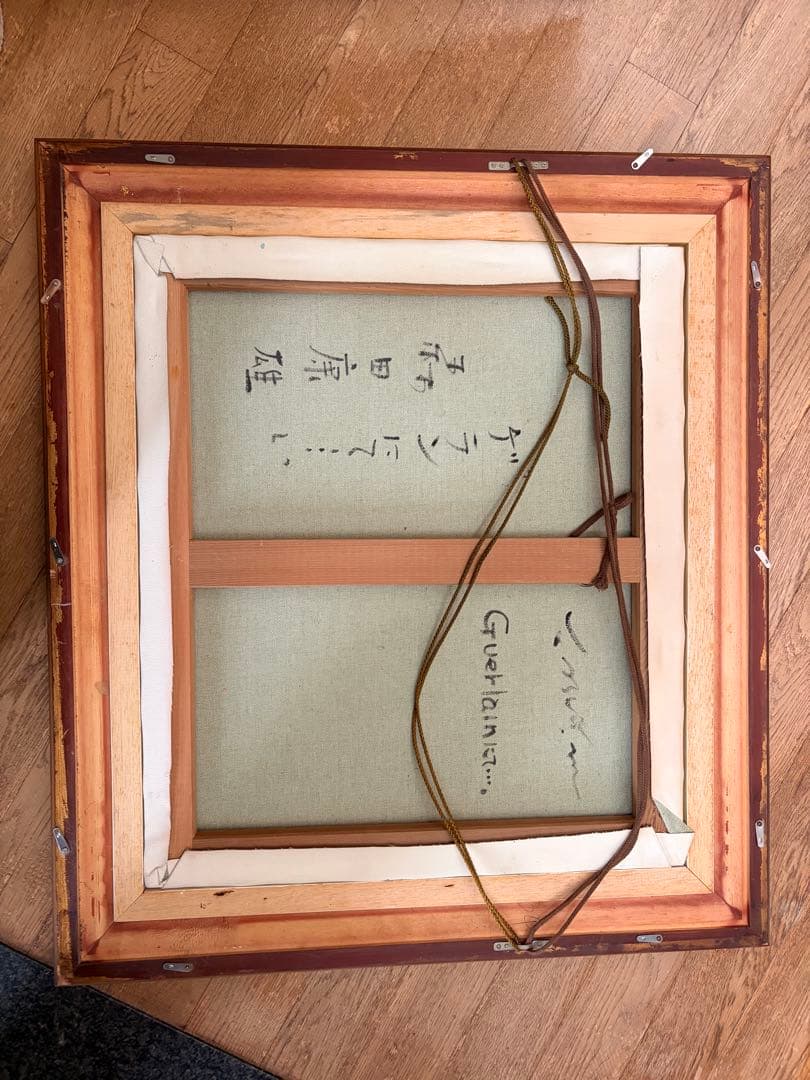 ゲランにて…
和田康雄
Guerlainにて….